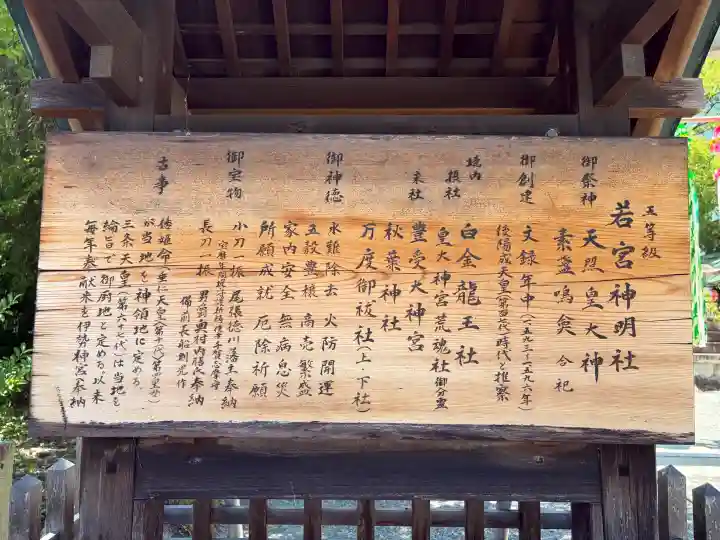 五等級
若宮神明社
御祭神 天照皇大神
素盞嗚尊 合祀
御創建 文録年中(一五九三〜一五九六年)
後陽成天皇(第百七代)時代と推察
境内
摂社 白金龍王社
皇大神宮荒魂社 御分霊
末社 豊受大神宮
秋葉神社
万度御祓社(上・下社)
御神徳 水難除去 火防開運
五穀豊穣 商売繁盛
家内安全 無病息災
所願成就 厄除祈願
御宝物 小刀一振 尾張徳川藩主奉納
長刀一振 男爵奥村内膳氏奉納
備前長船則光作
古事 倭姫命(垂仁天皇(第十一代)第四皇女)
が当地を神領地に定める
三条天皇(第六十七代)は当地を
綸旨で御厨地と定める。以来
毎年奉献米を伊勢神宮奉納